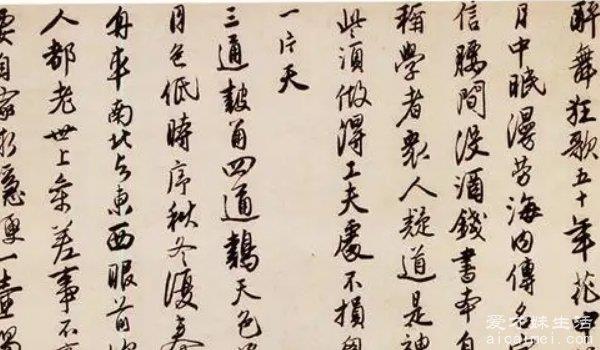 醉舞狂歌五十年花中
月中眠漫勞海內傳名
信腰間沒酒錢書本自
稱學者衆人疑道是神
些須做得工夫處不損
一片天
三通皷角四通鷄天色
月色低時序秋冬復春
舟車南北与東西眼前
人都老世上參差事不
要自家求穩便一壺
爱才妹生活
aicaimei.com